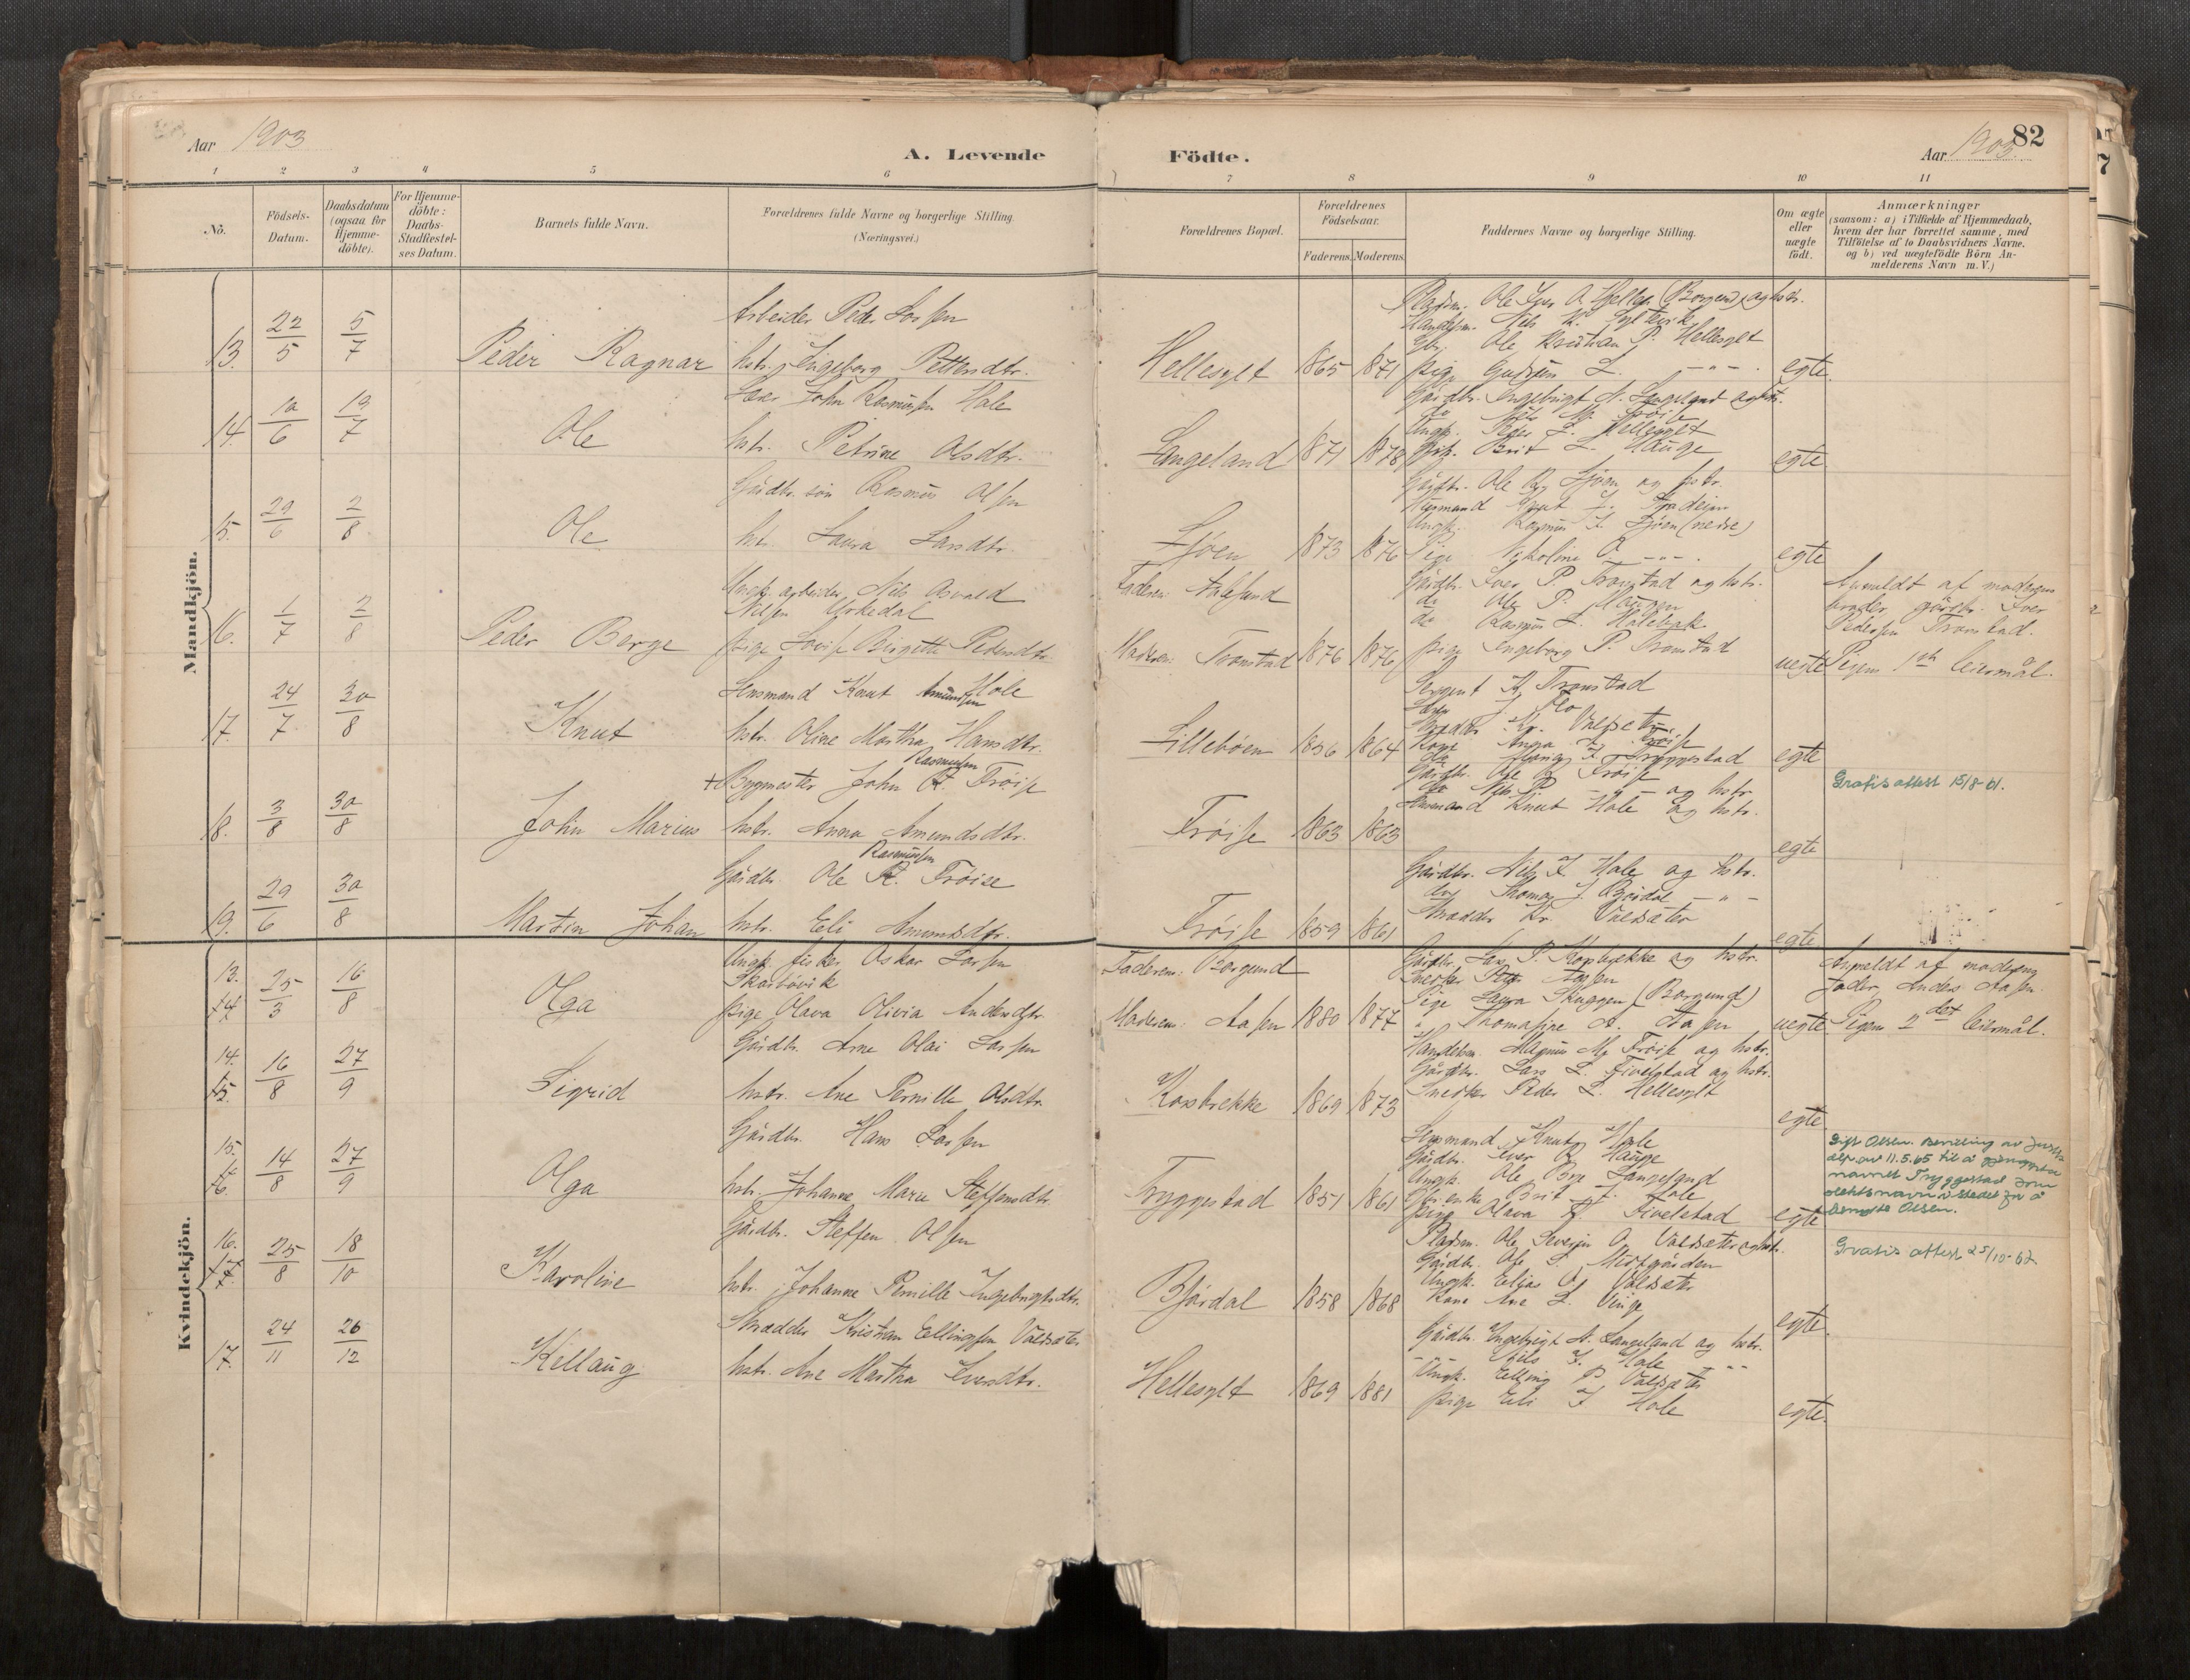 Aar 1903
A. Levende
Födte.
Aar 1903.
82
1 2 3 4 5 6 7 8 9 10 11
Nö.
Födsels-Datum.
Daabsdatum (ogsaa for Hjemme-döbte).
For Hjemme-döbte: Daabs-Stadfæstel-ses Datum.
Barnets fulde Navn.
Forældrenes fulde Navne og borgerlige Stilling.
(Næringsvei.)
Forældrenes Bopæl.
Forældrenes Födselsaar.
Faderens. Moderens.
Faddernes Navne og borgerlige Stilling.
Om ægte eller uægte födt.
Anmærkninger
(saasom: a) i Tilfælde af Hjemmedaab, hvem der har forrettet samme, med Tilföielse af to Daabsvidners Navne, og b) ved uægtefödte Börn Anmelderens Navn m. V.)
Mandkjön.
13. 22/5 5/7 Peder Ragnar
Arbeider Peder Larsen
hstr. Ingeborg Pettersdtr.
Hellesylt 1865 1871
Pladsm. Ole Iver A. Hjelle (Borgund) og hstr.
Handelsm. Nils K. Syltevik
Ole Kristian P. Hellesylt
Pige Gudrun L. - " -
egte.
14. 10/6 19/7 Ole
Lærer John Rasmussen Hole
hstr. Petrine Olsdtr.
Langeland 1871 1878
Gårdbr. Ingebrigt A. Langeland og hstr.
do Nils M. Frøise
Ungk. Peder L. Hellesylt
Brit L. Hauge
egte
15. 29/6 2/8 Ole
Gårdbr. søn Rasmus Olsen
hstr. Laura Larsdtr.
Ljøen 1873 1876
Gårdbr. Ole R. Ljøen og hstr.
Knut J. Stadeim
Ungk. Rasmus I. Ljøen (nedre)
Pige Nikoline O. - " -
egte
16. 1/7 2/8 Peder Berge
Ungk. arbeider Nils Osvald
Nilsen Urkedal
Pige Lovise Birgitte Pedersdtr.
Faderen: Aalesund
Moderen: Tronstad 1876 1876
Gårdbr. Iver P. Tronstad og hstr.
do Ole P. Haugen
do Rasmus L. Holebak
Pige Ingeborg P. Tronstad
uegte
Anmeldt af moderens
broder, gårdbr. Iver
Pedersen Tronstad.
Pigens 1ste leiermål.
17. 24/7 30/8 Knut
Lensmand Knut Amundsen Hole
hstr. Oline Martha Hansdtr.
Lillebøen 1856 1864
Sergent K. Tronstad
Lærer J. Flo
Skrædder Kr. Valsæter
Kone Anna I. Frøise
Tryggestad
egte
18. 3/8 30/8 John Marius
+ Bygmester John R. Rasmussen Frøise
hstr. Anna Amundsdtr.
Frøise 1863 1863
Gårdbr. Ole R. Frøise
do Nils P. - " - og hstr.
Lensmand Knut Hole og hstr.
egte
Gratis attest 15/8-61.
19. 29/6 30/8 Martin Johan
Gårdbr. Ole R. Rasmussen Frøise
hstr. Eli Amundsdtr.
Frøise 1859 1861
Gårdbr. Nils I. Hole og hstr.
do Thomas J. Bjørdal - " -
Skrædder Kr. Valdsæter
egte
Kvindekjön.
13. 14. 25/3 16/8 Olga
Ungk. fisker Oskar Larsen
Skarbövik
Pige Olava Olivia Andersdtr.
Faderen: Borgund
Moderen: Aasen 1880 1877
Gårdbr. Lars P. Korsbrekke og hstr.
Snedker Petter Aasen
Pige Laura Skuggen (Borgund)
" Thomasine A. Aasen
uegte
Anmeldt af moderens
fader, Anders Aasen.
Pigens 2det leiermål.
14. 15. 16/8 27/9 Sigrid
Gårdbr. Arne Olai Larsen
hstr. Ane Pernille Olsdtr.
Korsbrekke 1869 1873
Handelsm. Magnus M. Frøise og hstr.
Gårdbr. Lars L. Fivelstad og hstr.
Snedker Peder L. Hellesylt
egte
15. 16. 14/8 27/9 Olga
Gårdbr. Hans Larsen
hstr. Johanne Marie Steffensdtr.
Tryggestad 1851 1861
Lensmand Knut Hole
Gårdbr. Iver R. Hauge
Ungk. Ole Brye Langeland
Gbr. enke Brit J. Hole
Pige Olava K. Fivelstad
egte
Gift Olsen. Bevilling av Just.
dep av 11.5.65 til å gjenoppta
navnet Tryggestad som
slektsnavn i stedet for å
benytte Olsen.
16. 17. 25/8 18/10 Karoline
Gårdbr. Steffen Olsen
hstr. Johanne Pernille Ingebrigtsdtr.
Bjørdal 1858 1868
Pladsm. Ole Severin O. Valdsæter og hstr.
Gårdbr. Ole S. Midtgården
Ungk. Elias O. Valdsæter
Kone Ane L. Vinge
egte
Gratis attest 25/10-62
17. 24/11 26/12 Kellaug
Skrædder Kristian Ellingsen Valdsæter
hstr. Ane Martha Iversdtr.
Hellesylt 1869 1881
Gårdbr. Ingebrigt A. Langeland og hstr.
- " - Nils I. Hole - " -
Ungk. Elling P. Valdsæter
Pige Eli I. Hole
egte.